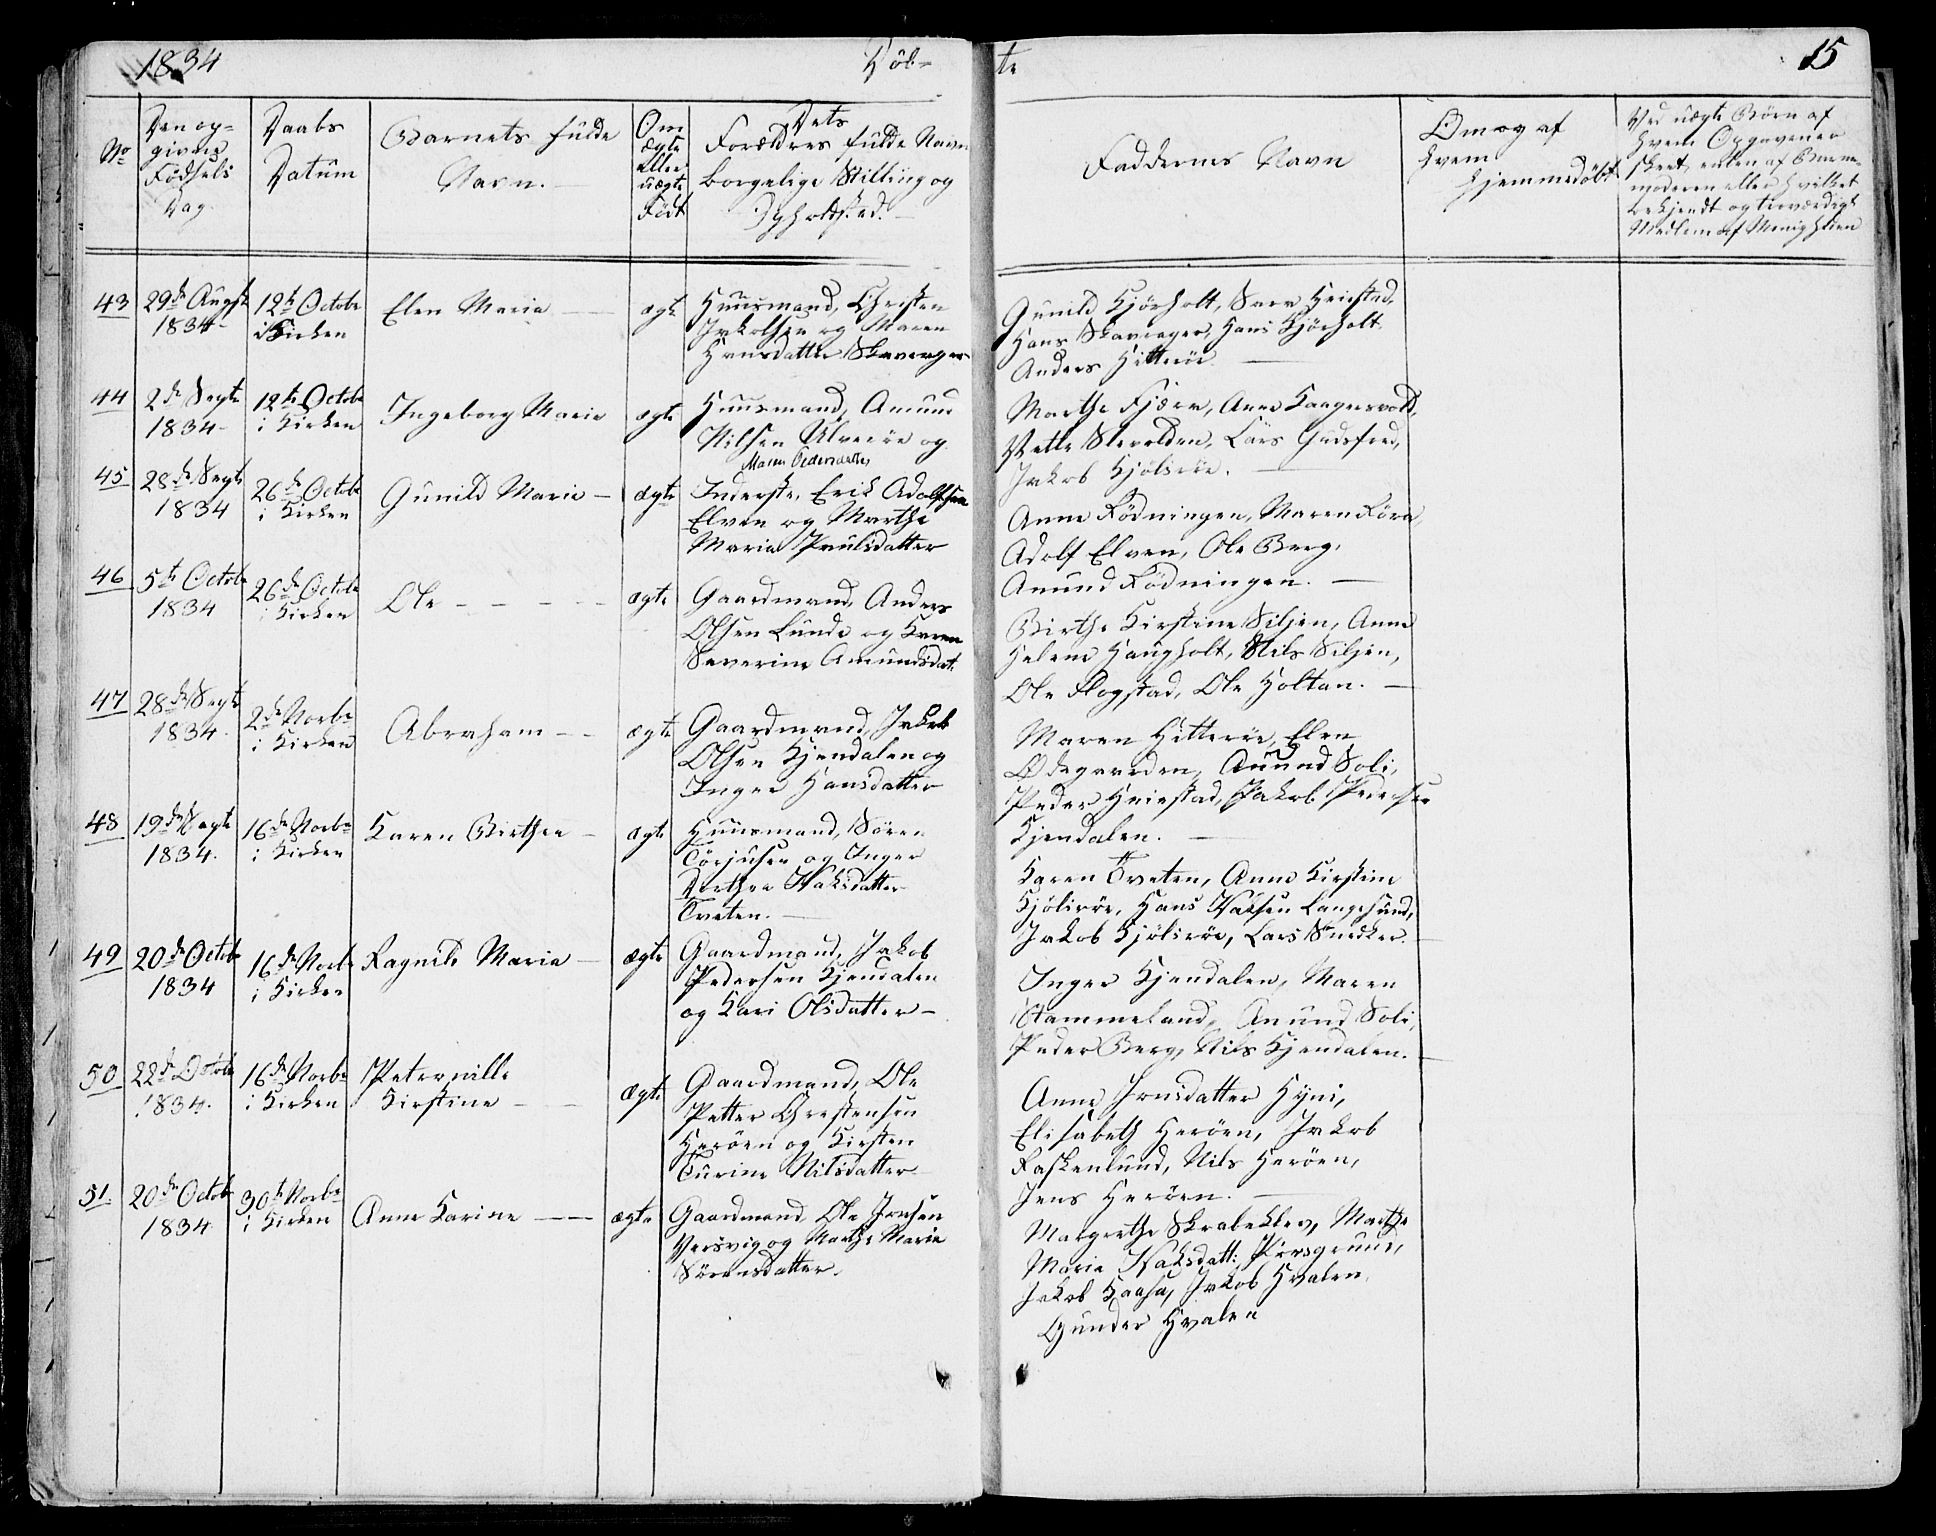 1834 Döb-
te 15
No
Den op-
givne
Födsels
Dag.
Daabs
Datum
Barnets fulde
Navn.
Om
ægte
eller
uægte
Födt
Dets
Forældres fulde Navn
borgelige Stilling og
Opholdsted.
Faddernes Navn
Om og af
hvem
hjemmedöbt
Ved uægte Börn af
hvem Opgaven er
skeet, enten af Barne-
moderen eller hvilket
bekjendt og troværdigt
Medlem af Menigheden
43
29de Augst
1834
12te Octobr
i Kirken
Elen Maria
ægte
Huusmand, Christen
Jakobsen og Maren
Hansdatter Skavager
Gunild Kjörholt, Heistad,
Hans Skavager, Hans Kjörholt
Anders Hitteröe
44
2de Septr
1834
12te Octobr
i Kirken
Ingeborg Marie
ægte
Huusmand, Amund
Nilsen Alveröe og
Maren Pedersdatter
Marthe Fjære, Anne Kaagersvold,
Lars
Jakob Kjölsröe.
45
28de Septr
1834
26de Octobr
i Kirken
Gunild Marie
ægte
Inderste, Erik Adolfsen
Elven og Marthe
Maria Paulsdatter
Anne Rödningen, Maren Röra,
Adolf Elven, Ole Berg,
Amund Rödningen.
46
5te Octobr
1834
26de Octobr
i Kirken
Ole
ægte
Gaardmand, Anders
Olsen Lunde og Karen
Severine Amundsdat.
Birthe Kirstine Siljen, Anne
Helene Haugholt, Nils Siljen,
Ole Flogstad, Ole Holtan.
47
28de Septr
1834.
2de Novbr
i Kirken
Abraham
ægte
Gaardmand, Jakob
Olsen Kjendalen og
Inger Hansdatter
Maren Hitteröe, Elen
Ödegaarden, Amund Soli,
Peder Heiestad, Jakob Pedersen
Kjendalen.
48
19de Septr
1834.
16de Novbr
i Kirken
Karen Birthea
ægte
Huusmand, Sören
Torjusen og Inger
Dorthea Isaksdatter
Tveten.
Karen Tveten, Anne Kirstine
Kjölsröe, Hans Langesund,
Jakob Kjölsröe, Lars Snedker.
49
20de Octobr
1834
16de Novbr
i Kirken
Ragnild Maria
ægte
Gaardmand, Jakob
Pedersen Kjendalen
og Kari Olsdatter
Inger Kjendalen, Maren
Stammeland, Amund Soli,
Peder Berg, Nils Kjendalen.
50
22de Octobr
1834.
16de Novbr
i Kirken
Peternille
Kirstine
ægte
Gaardmand, Ole
Petter Christensen
Heröen og Kirsten
Turine Nilsdatter
Anne Jonsdatter
Elisabeth Heröen, Jakob
Raskenlund, Nils Heröen,
Jens Heröen.
51.
20de Octobr
1834
30te Novbr
i Kirken
Anne Karine
ægte
Gaardmand Ole Jensen
Versvig og Marthe Marie
Sörensdatter.
Margrethe Skrabeklev, Marthe
Marie Isaksdatt: Porsgrund,
Jakob Kaasa, Jakob Hvalen,
Gunder Hvalen